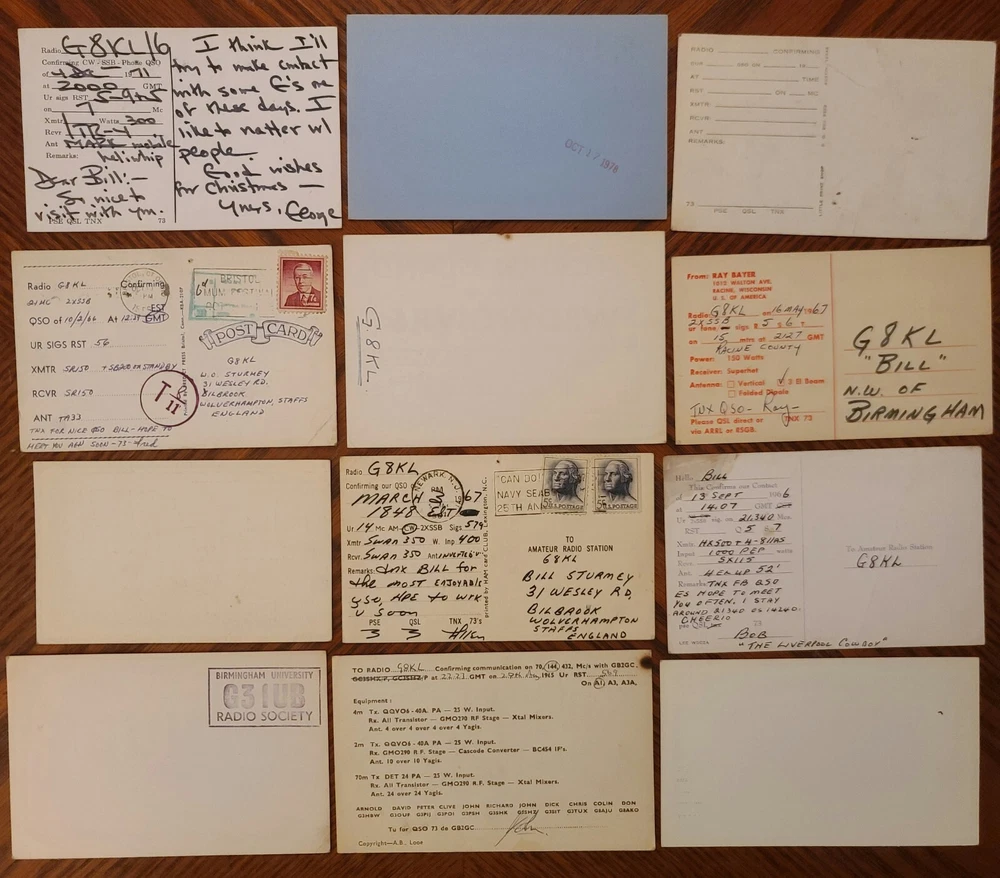 Radio G8KL/6
Confirming CW-SSB-Phone QSO
of 4 Dec 1971
at 2000 GMT
Ur sigs RST 5-9+5
on 7 Mc
Xmtr Watts 300
Rcvr TR-4
Ant mobile
Remarks: heliwhip
Dear Bill:-
So nice to
visit with you.
PSE QSL TNX 73
I think I'll
try to make contact
with some G's one
of these days. I
like to natter w/
people.
Good wishes
for Christmas —
Yours, George
OCT 17 1976
RADIO CONFIRMING
AT TIME
RST ON MC
XMTR:
RCVR:
ANT
REMARKS:
73
PSE QSL TNX
Radio G8KL Confirming
21MC 2XSSB
QSO of 10/2/66 At EST GMT
UR SIGS RST 56
XMTR SR150 + SB200 ON STANDBY
RCVR SR150
ANT TA33
TNX FOR NICE QSO BILL- HOPE TO
MEET YOU AGN SOON -73- Fred
BRISTOL
T 11
POST CARD
G8KL
W.O. STURMEY
31 WESLEY RD.
BILBROOK
WOLVERHAMPTON, STAFFS
ENGLAND
G8KL
From: RAY BAYER
1010 WALTON AVE.
RACINE, WISCONSIN
U. S. OF AMERICA
Radio: G8KL on 16 MAY 67
2XSSB
or fone, sigs R 5 S 6 T
on 15 mtrs at 2127 GMT
RACINE COUNTY
Power: 150 Watts
Receiver: Superhet
Antenna: Vertical 3 El Beam
Folded Dipole
TNX QSO - Ray-
Please QSL direct or TNX 73
via ARRL or RSGB.
G8KL
"BILL"
N.W. OF
BIRMINGHAM
Radio G8KL
Confirming our QSO of
MARCH 67
1848
Ur 14 Mc AM-CW-2XSSB Sigs 579
Xmtr SWAN 350 W. Inp. 400
Rcvr. SWAN 350 Ant. INVERTED V
Remarks: TNX BILL for
the most ENJOYABLE
QSO, HPE to WRK
U SOON
PSE QSL TNX 73's
printed by HAM card CLUB, Lexington, N.C.
NEWARK, N.J.
"CAN DO"
NAVY SEAB
25TH AN
U.S. POSTAGE
TO
AMATEUR RADIO STATION
G8KL
BILL STURMEY
31 WESLEY RD,
BILBROOK
WOLVERHAMPTON
STAFFS
ENGLAND
BILL
This Confirms our Contact
13 SEPT 1966
at 14.07 GMT
Ur sig. on 21.340 Mcs.
RST 5 7
Xmtr. HX500 + H-811AS
Input 1000 PEP watts
Recv. SX115
Ant. 4 EL UP 52'
Remarks: TNX FB QSO
ES HOPE TO MEET
YOU OFTEN, I STAY
AROUND 21340 OR 14240.
CHEERIO
73
BOB
"THE LIVERPOOL COWBOY"
To Amateur Radio Station
G8KL
BIRMINGHAM UNIVERSITY
G3IUB
RADIO SOCIETY
TO RADIO G8KL Confirming communication on 70, 144, 432, Mc/s with GB2GC,
/P at 22.21 GMT on 1965 Ur RST 569
On A1, A3, A3A,
Equipment:
4m Tx. QQVO6 - 40A. PA — 25 W. Input.
Rx. All Transistor — GMO270 RF Stage — Xtal Mixers.
Ant. 4 over 4 over 4 over 4 Yagis.
2m Tx. QQVO6 - 40A PA — 25 W. Input.
Rx. GMO290 R.F. Stage — Cascode Converter — BC454 IF's.
Ant. 10 over 10 Yagis.
70m Tx DET 24 PA — 25 W. Input.
Rx. All Transistor — GMO290 R.F. Stage — Xtal Mixers.
Ant. 24 over 24 Yagis.
ARNOLD DAVID PETER CLIVE JOHN RICHARD JOHN DICK CHRIS COLIN DON
Tu for QSO 73 de GB2GC. John
Copyright—A.B., Looe